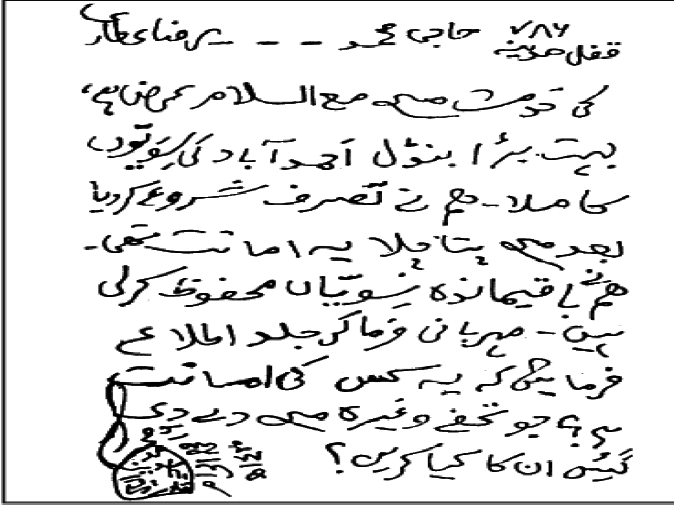 ۷۸۶ حاجی محمد - - - رضا عطاری
قفل مدینہ
کی خدمت میں مع السلام عرض ہے،
بہت بڑا بنڈل احمد آباد کی سویّوں
کا ملا۔ ہم نے تصرف شروع کر دیا
بعد میں پتا چلا یہ امانت تھی۔
ہم نے باقیماندہ سویّاں محفوظ کر لی
ہیں۔ مہربانی فرما کر جلد اطلاع
فرمائیں کہ یہ کس کی امانت
ہے؟ جو تحفے وغیرہ میں دے دی
گئیں ان کا کیا کریں؟